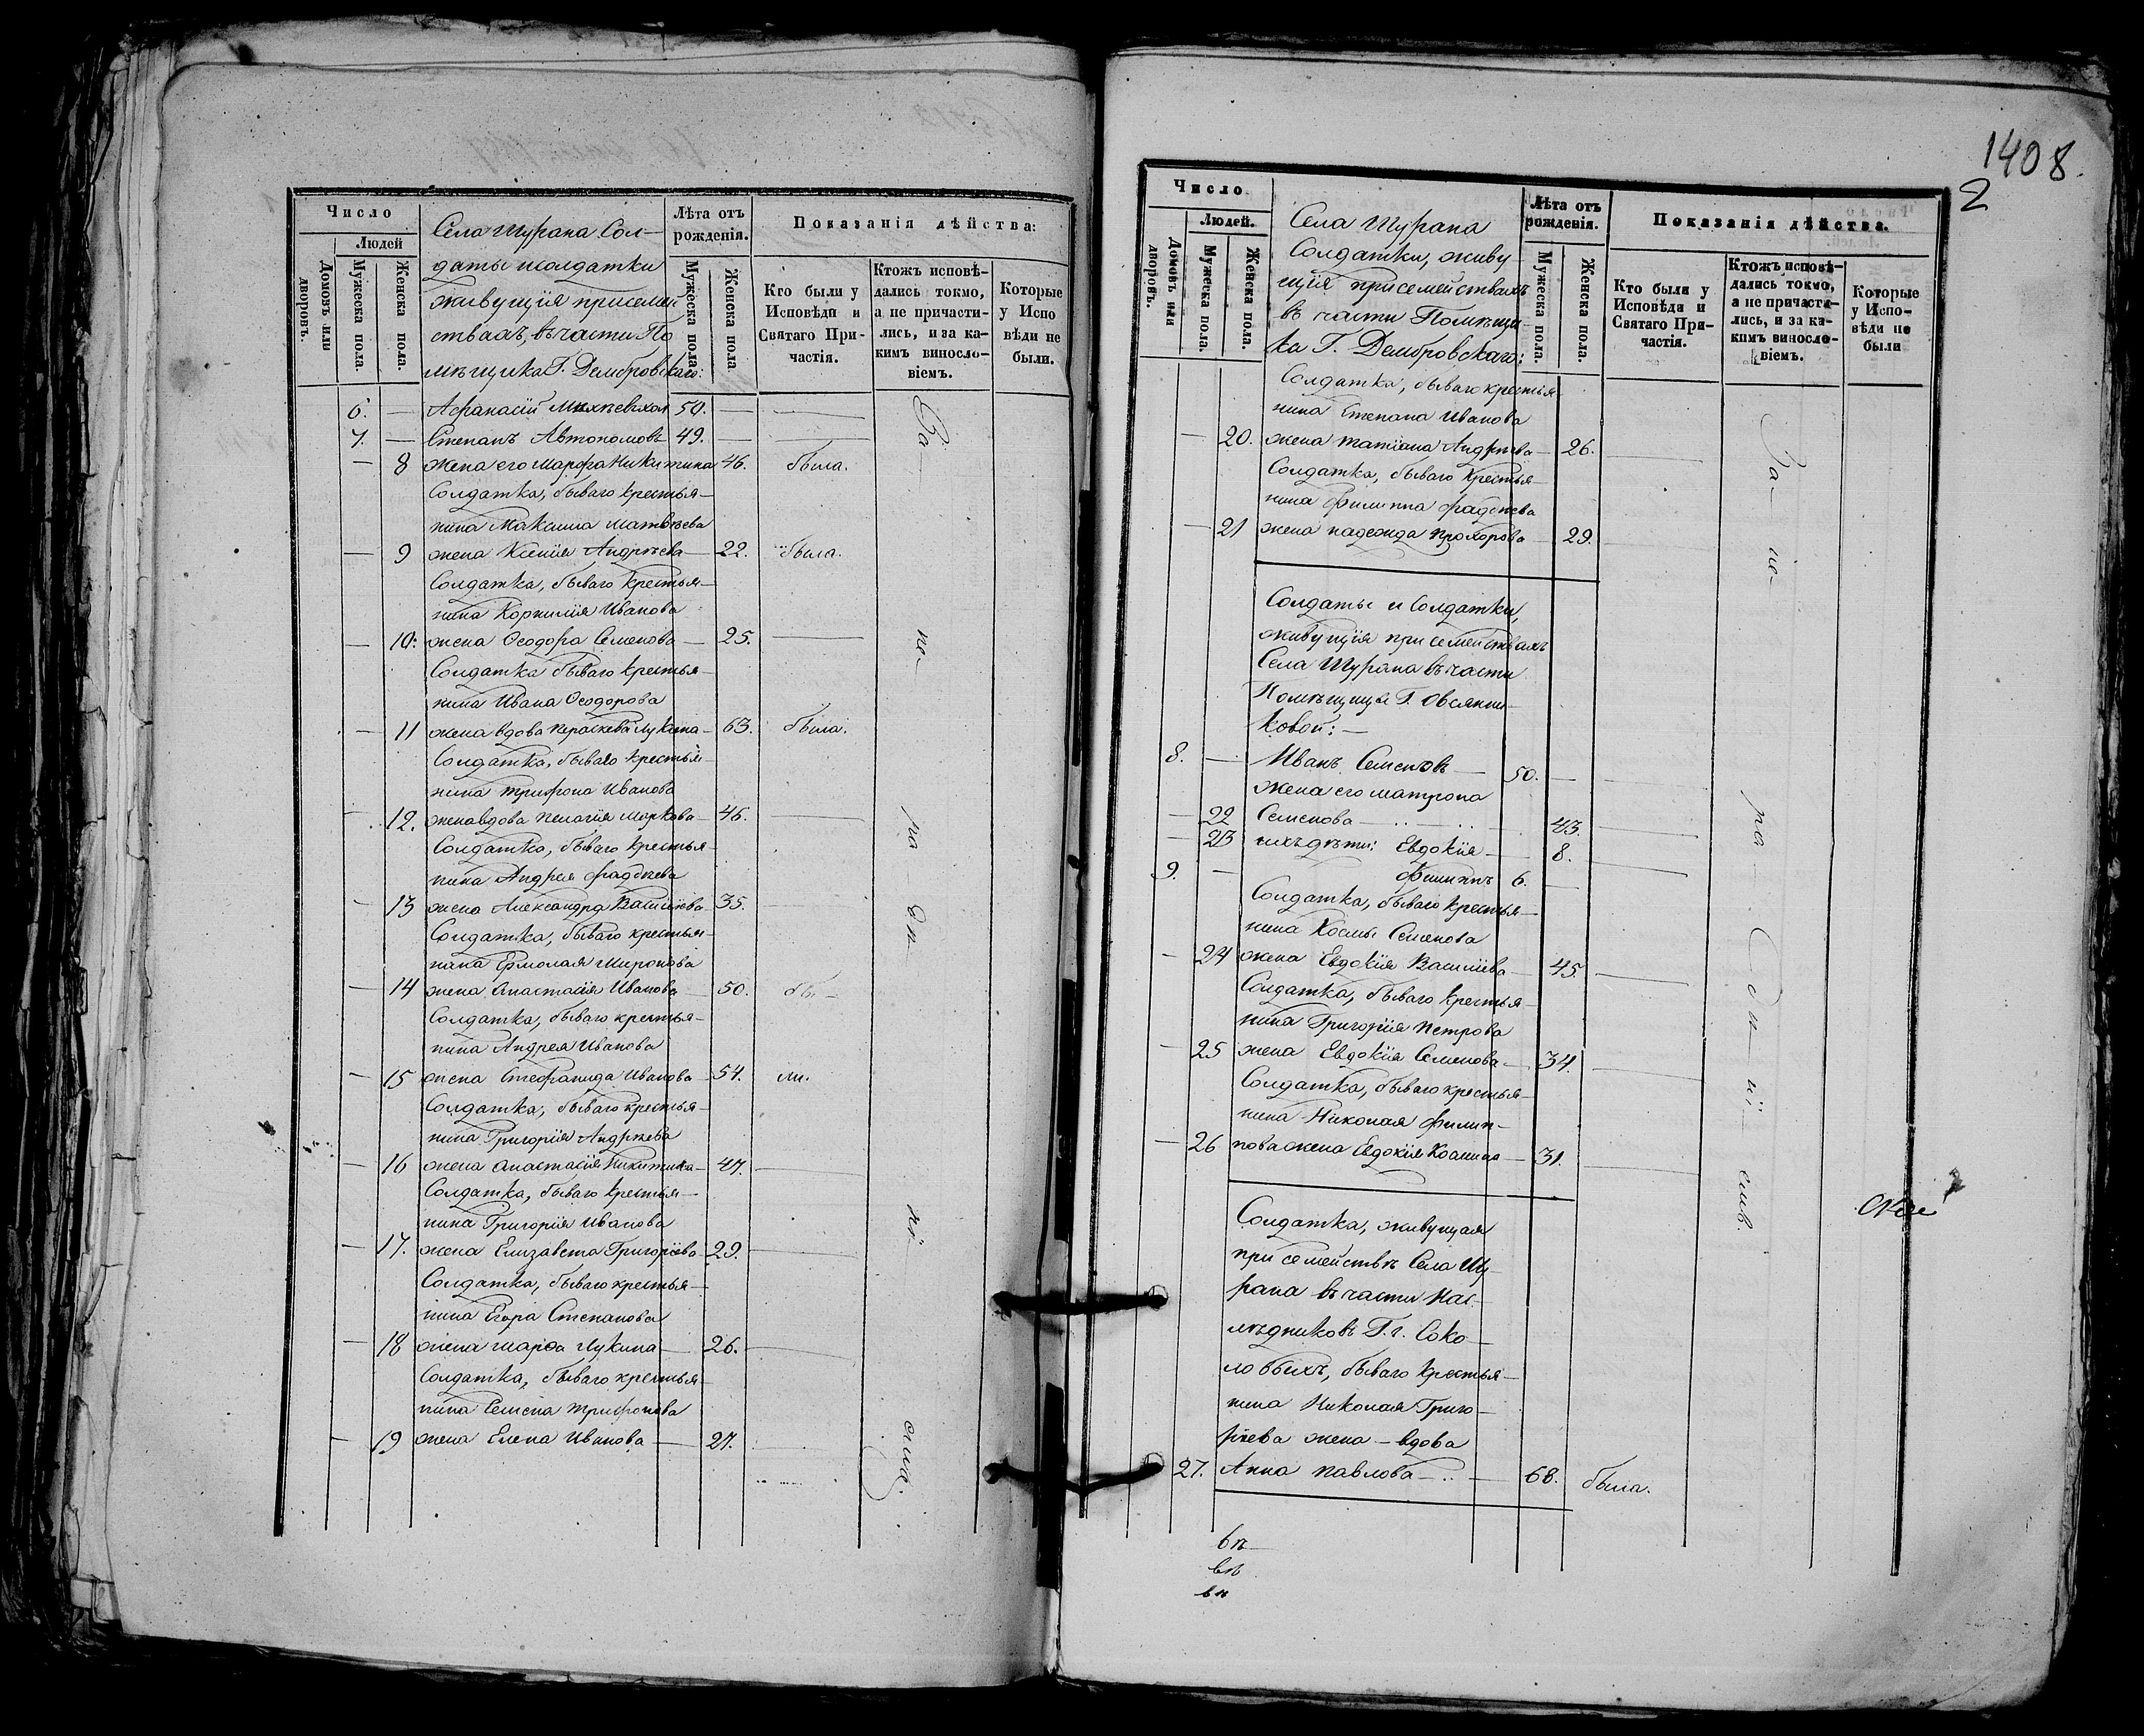 Число
Людей
Домовъ или дворовъ.
Мужеска пола.
Женска пола.
Села Шурана Сол-
даты и солдатки
живущія присемей
ствахъ, въ части По
мѣщика Г. Дембровскаго:
Лѣта отъ рожденія.
Мужеска пола.
Женска пола
Показанія дѣйства:
Кто были у Исповѣди и Святаго При-частія.
Ктожъ исповѣ-дались токмо, а не причасти-лись, и за ка-кимъ винosло-віемъ.
Которые у Испо вѣди не были.
6. — Аѳанасій 50. —
7. — Степанъ Автономовъ 49. —
— 8 жена его Марфа Никитина 46. была.
Солдатка, бываго крестья-
нина Максима Матвѣева
— 9 жена Ксенія Андрѣева — 22. была.
Солдатка, бываго крестья-
нина Корнилія Иванова
— 10: жена Ѳеодора Семенова — 25. —
Солдатка бываго крестья-
нина Ивана Ѳеодорова
— 11 жена вдова Лукина — 63. была.
Солдатка, бываго крестья-
нина Трифона Иванова
— 12. жена вдова Пелагія Маркова — 46. —
Солдатка, бываго крестья-
нина Андрея Фадѣева
— 13 жена Александра Василіева — 35. —
Солдатка, бываго крестья-
нина Ермолая Миронова
— 14 жена Анастасія Иванова — 50. бы-
Солдатка, бываго крестья-
нина Андрея Иванова
— 15 жена Стефанида Иванова — 54. ли.
Солдатка, бываго крестья-
нина Григорія Андрѣева
— 16 жена Анастасія Никитина — 47. —
Солдатка, бываго крестья-
нина Григорія Иванова
— 17. жена Елизавета Григоріева — 29. —
Солдатка, бываго крестья-
нина Егора Степанова
— 18 жена Марѳа Лукина — 26. —
Солдатка, бываго крестья-
нина Семена Трифонова
— 19 жена Елена Иванова — 27. —
1408.
2
Число
Людей.
Домовъ или дворовъ.
Мужеска пола.
Женска пола.
Села Шурана
Солдатки, живу
щія присемействахъ
въ части Помѣщи
ка Г. Дембровскаго:
Лѣта отъ рожденія.
Мужеска пола.
Женска пола.
Показанія дѣйства.
Кто были у Исповѣди и Святаго При-частія.
Ктожъ исповѣ-дались токмо, а не причасти-лись, и за ка-кимъ винosло-віемъ.
Которые у Испо-вѣди не были
Солдатка, бываго крестья-
нина Степана Иванова
— 20. жена Татіана Андрѣева — 26. —
Солдатка, бываго крестья-
нина Филиппа Фадѣева
— 21 жена Надежда Прохорова — 29. —
Солдаты и Солдатки,
живущія при семействахъ
Села Шурана въ части
Помѣщицы Г. Овсянни-
ковой: —
8. — Иванъ Семеновъ — 50. —
жена его Матрона
— 22 Семенова — 43. —
— 23 ихъ дѣти: Евдокія — 8. —
9. — Филиппъ 6. —
Солдатка, бываго крестья-
нина Космы Семенова
— 24 жена Евдокія Василіева — 45. —
Солдатка, бываго крестья-
нина Григорія Петрова
— 25 жена Евдокія Семенова — 34. —
Солдатка, бываго крестья-
нина Николая Филип-
— 26 пова жена Евдокія — 31. —
Солдатка, живущая
при семействѣ Села Шу-
рана въ части Нас-
лѣдниковъ Г. г. Соко-
ловыхъ, бываго крестья-
нина Николая Григо-
рьева жена — вдова
27. Анна Павлова — 68. была.